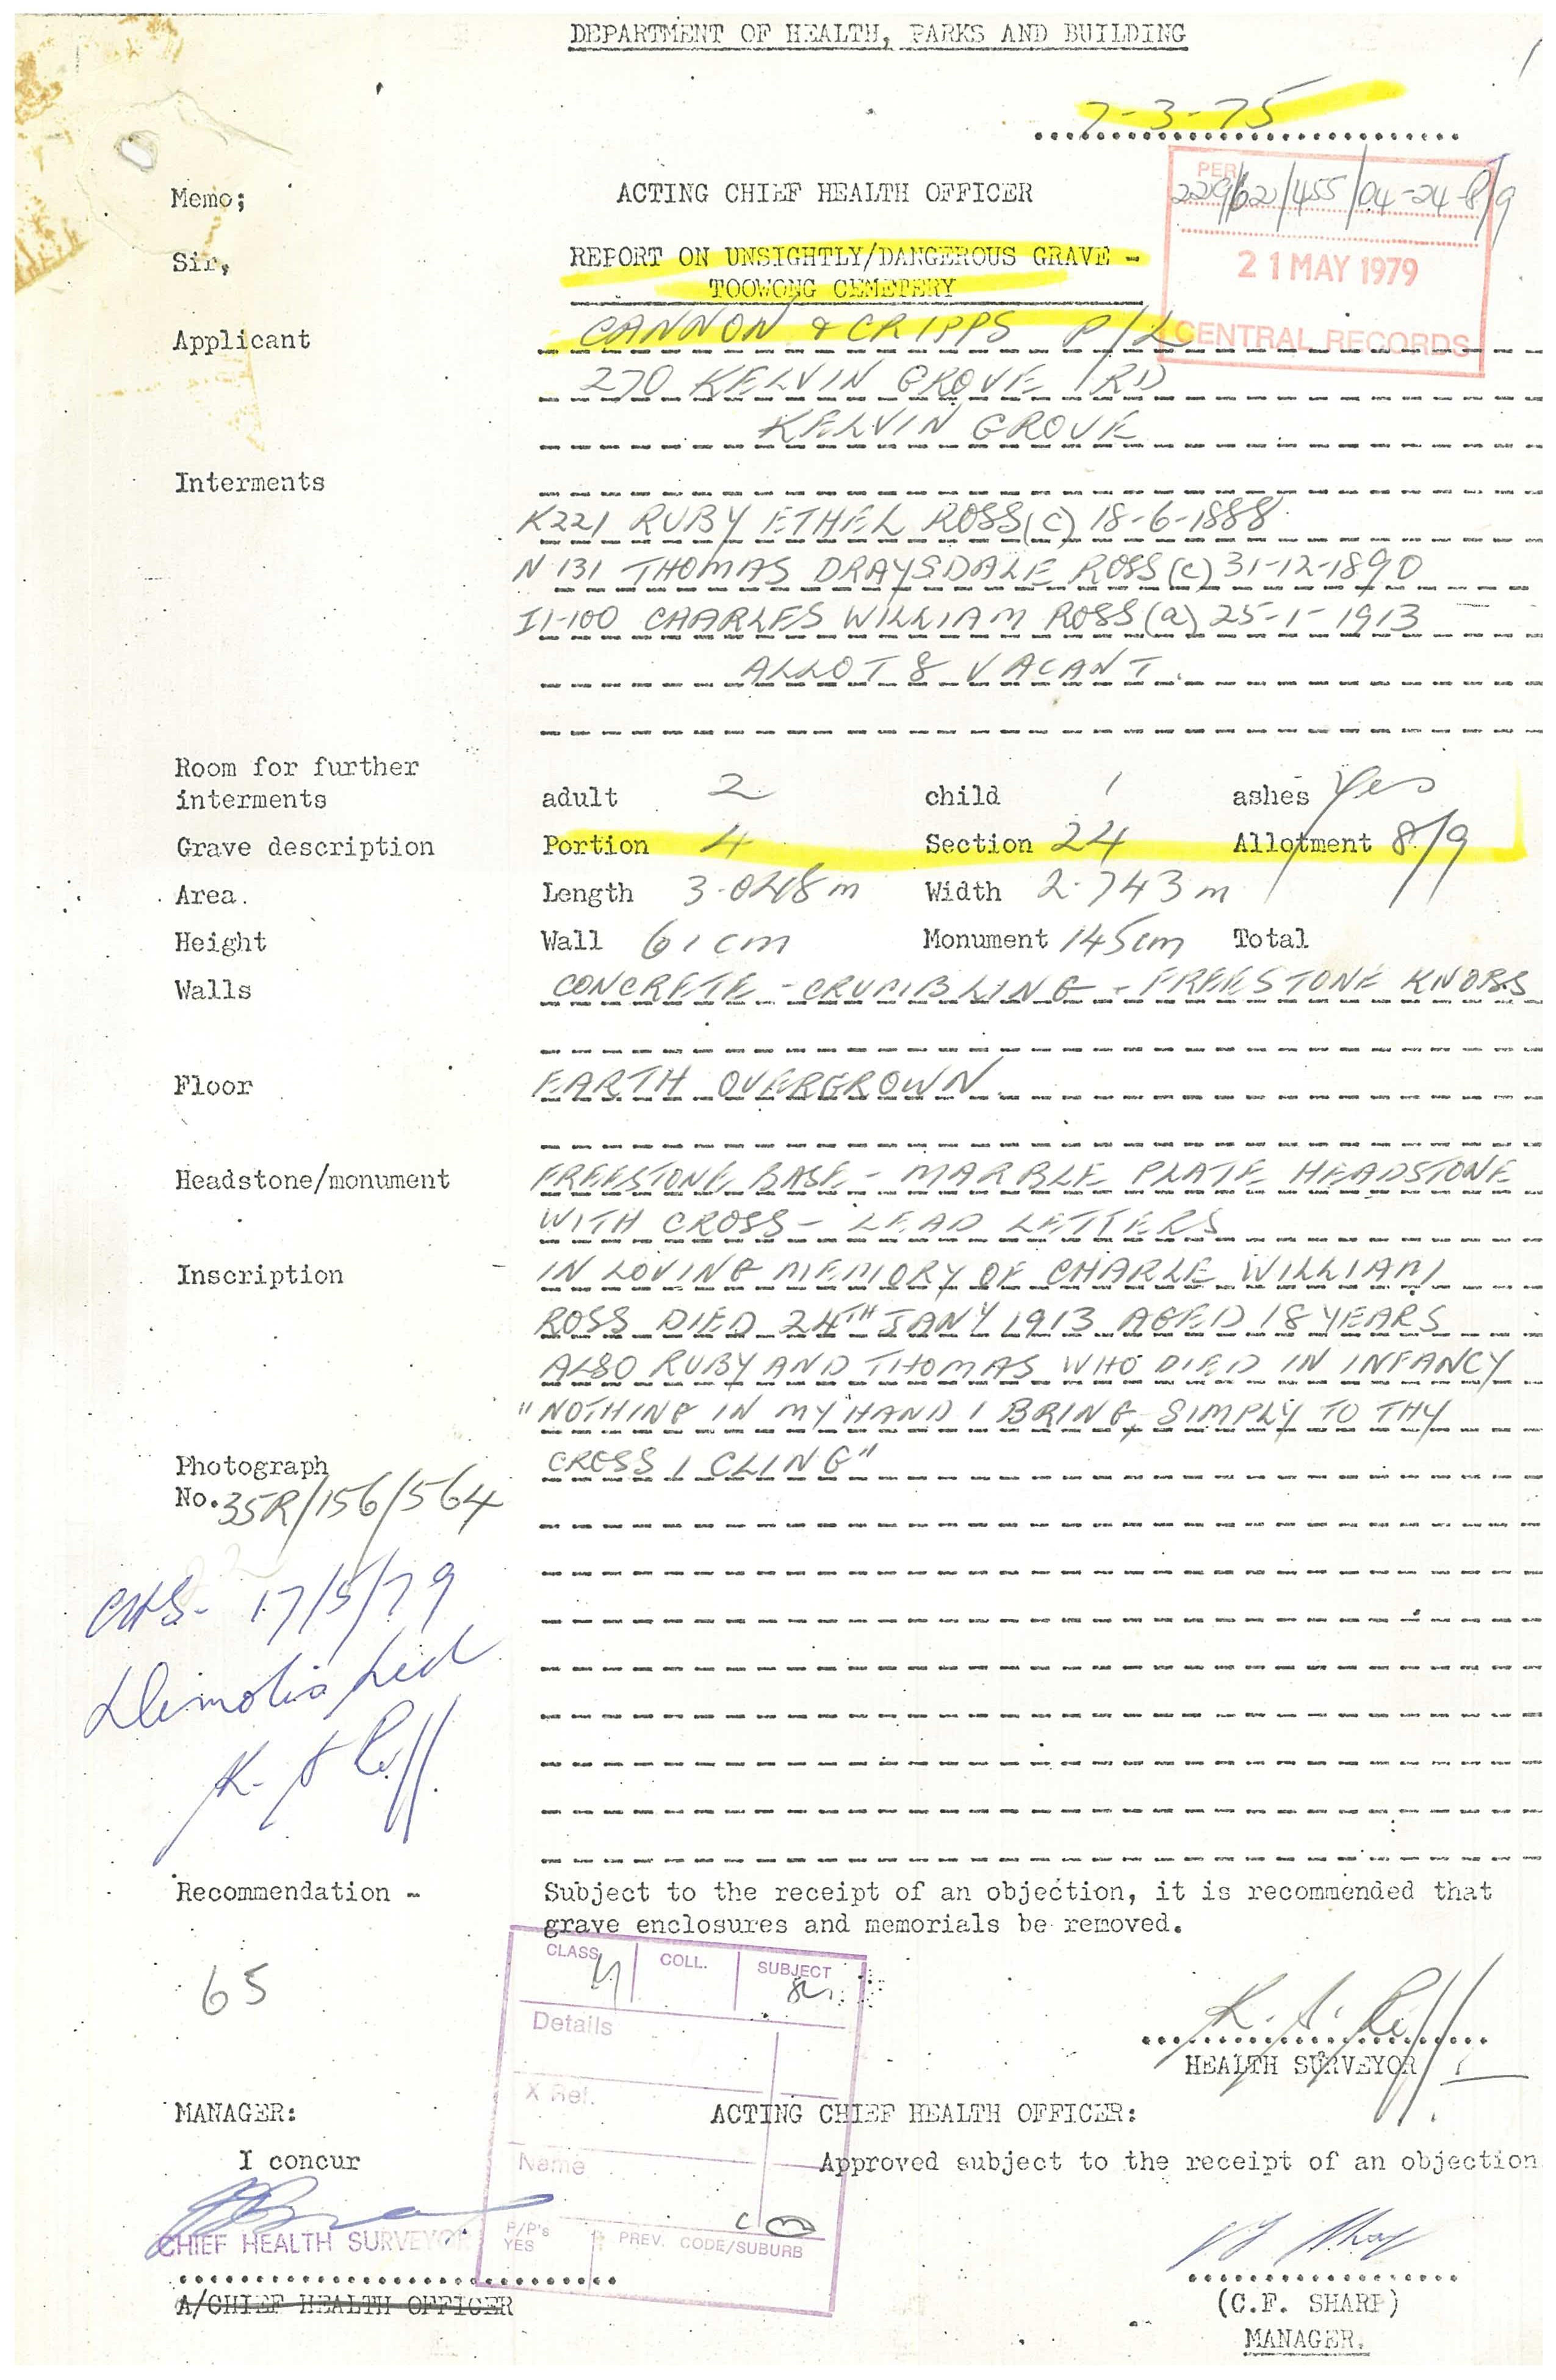 DEPARTMENT OF HEALTH, PARKS AND BUILDING
7-3-75
Memo;
ACTING CHIEF HEALTH OFFICER
PER
229/62/455/04-24-8/9
Sir,
REPORT ON UNSIGHTLY/DANGEROUS GRAVE -
TOOWONG CEMETERY
21 MAY 1979
CENTRAL RECORDS
Applicant
CANNON & CRIPPS P/L
270 KELVIN GROVE RD
KELVIN GROVE
Interments
K221 RUBY ETHEL ROSS (C) 18-6-1888
N131 THOMAS DRAYSDALE ROSS (C) 31-12-1890
I1-100 CHARLES WILLIAM ROSS (a) 25-1-1913
ALLOT 8 VACANT.
Room for further
interments adult 2 child 1 ashes Yes
Grave description Portion 4 Section 24 Allotment 8/9
Area. Length 3.048m Width 2.743m
Height Wall 61cm Monument 145cm Total
Walls CONCRETE - CRUMBLING - FREESTONE KNOBS
Floor EARTH OVERGROWN
Headstone/monument FREESTONE BASE - MARBLE PLATE HEADSTONE
WITH CROSS - LEAD LETTERS
Inscription IN LOVING MEMORY OF CHARLE WILLIAM
ROSS DIED 24TH JANY 1913 AGED 18 YEARS
ALSO RUBY AND THOMAS WHO DIED IN INFANCY
"NOTHING IN MY HAND I BRING, SIMPLY TO THY
CROSS I CLING"
Photograph
No. 35R/156/564
CHS- 17/5/79
Demolished
Recommendation - Subject to the receipt of an objection, it is recommended that
grave enclosures and memorials be removed.
65
CLASS COLL. SUBJECT
Details
X Ref.
Name
P/P's
YES
PREV. CODE/SUBURB
HEALTH SURVEYOR
MANAGER:
ACTING CHIEF HEALTH OFFICER:
I concur
Approved subject to the receipt of an objection
CHIEF HEALTH SURVEYOR
A/CHIEF HEALTH OFFICER
(C.F. SHARP)
MANAGER.